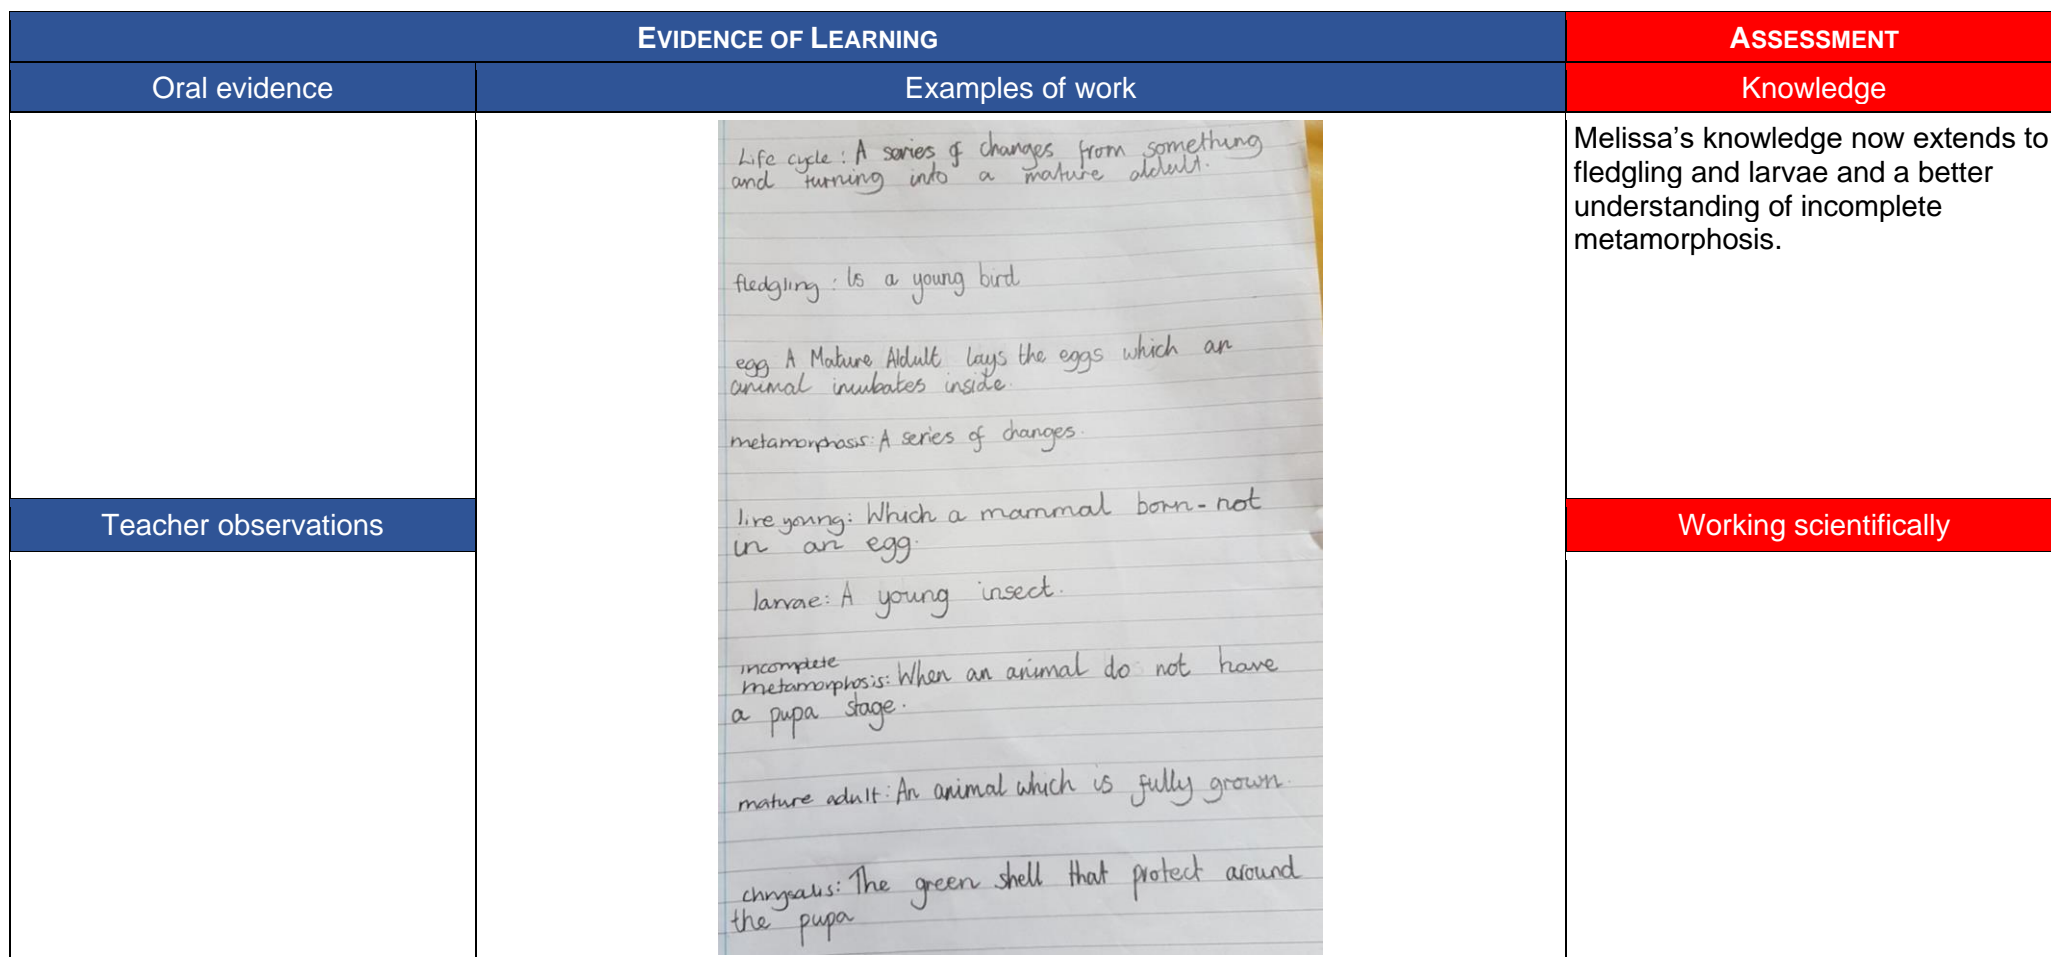 EVIDENCE OF LEARNING
ASSESSMENT
Oral evidence
Examples of work
Knowledge
Life cycle: A series of changes from something
and turning into a mature aldult.
fledgling: Is a young bird
egg A Mature Aldult lays the eggs which an
animal inubates inside.
metamorphosis: A series of changes.
live young: Which a mammal born - not
in an egg.
larvae: A young insect.
incomplete
metamorphosis: When an animal do not have
a pupa stage.
mature adult: An animal which is fully grown.
chrysalis: The green shell that protect around
the pupa
Melissa's knowledge now extends to
fledgling and larvae and a better
understanding of incomplete
metamorphosis.
Teacher observations
Working scientifically